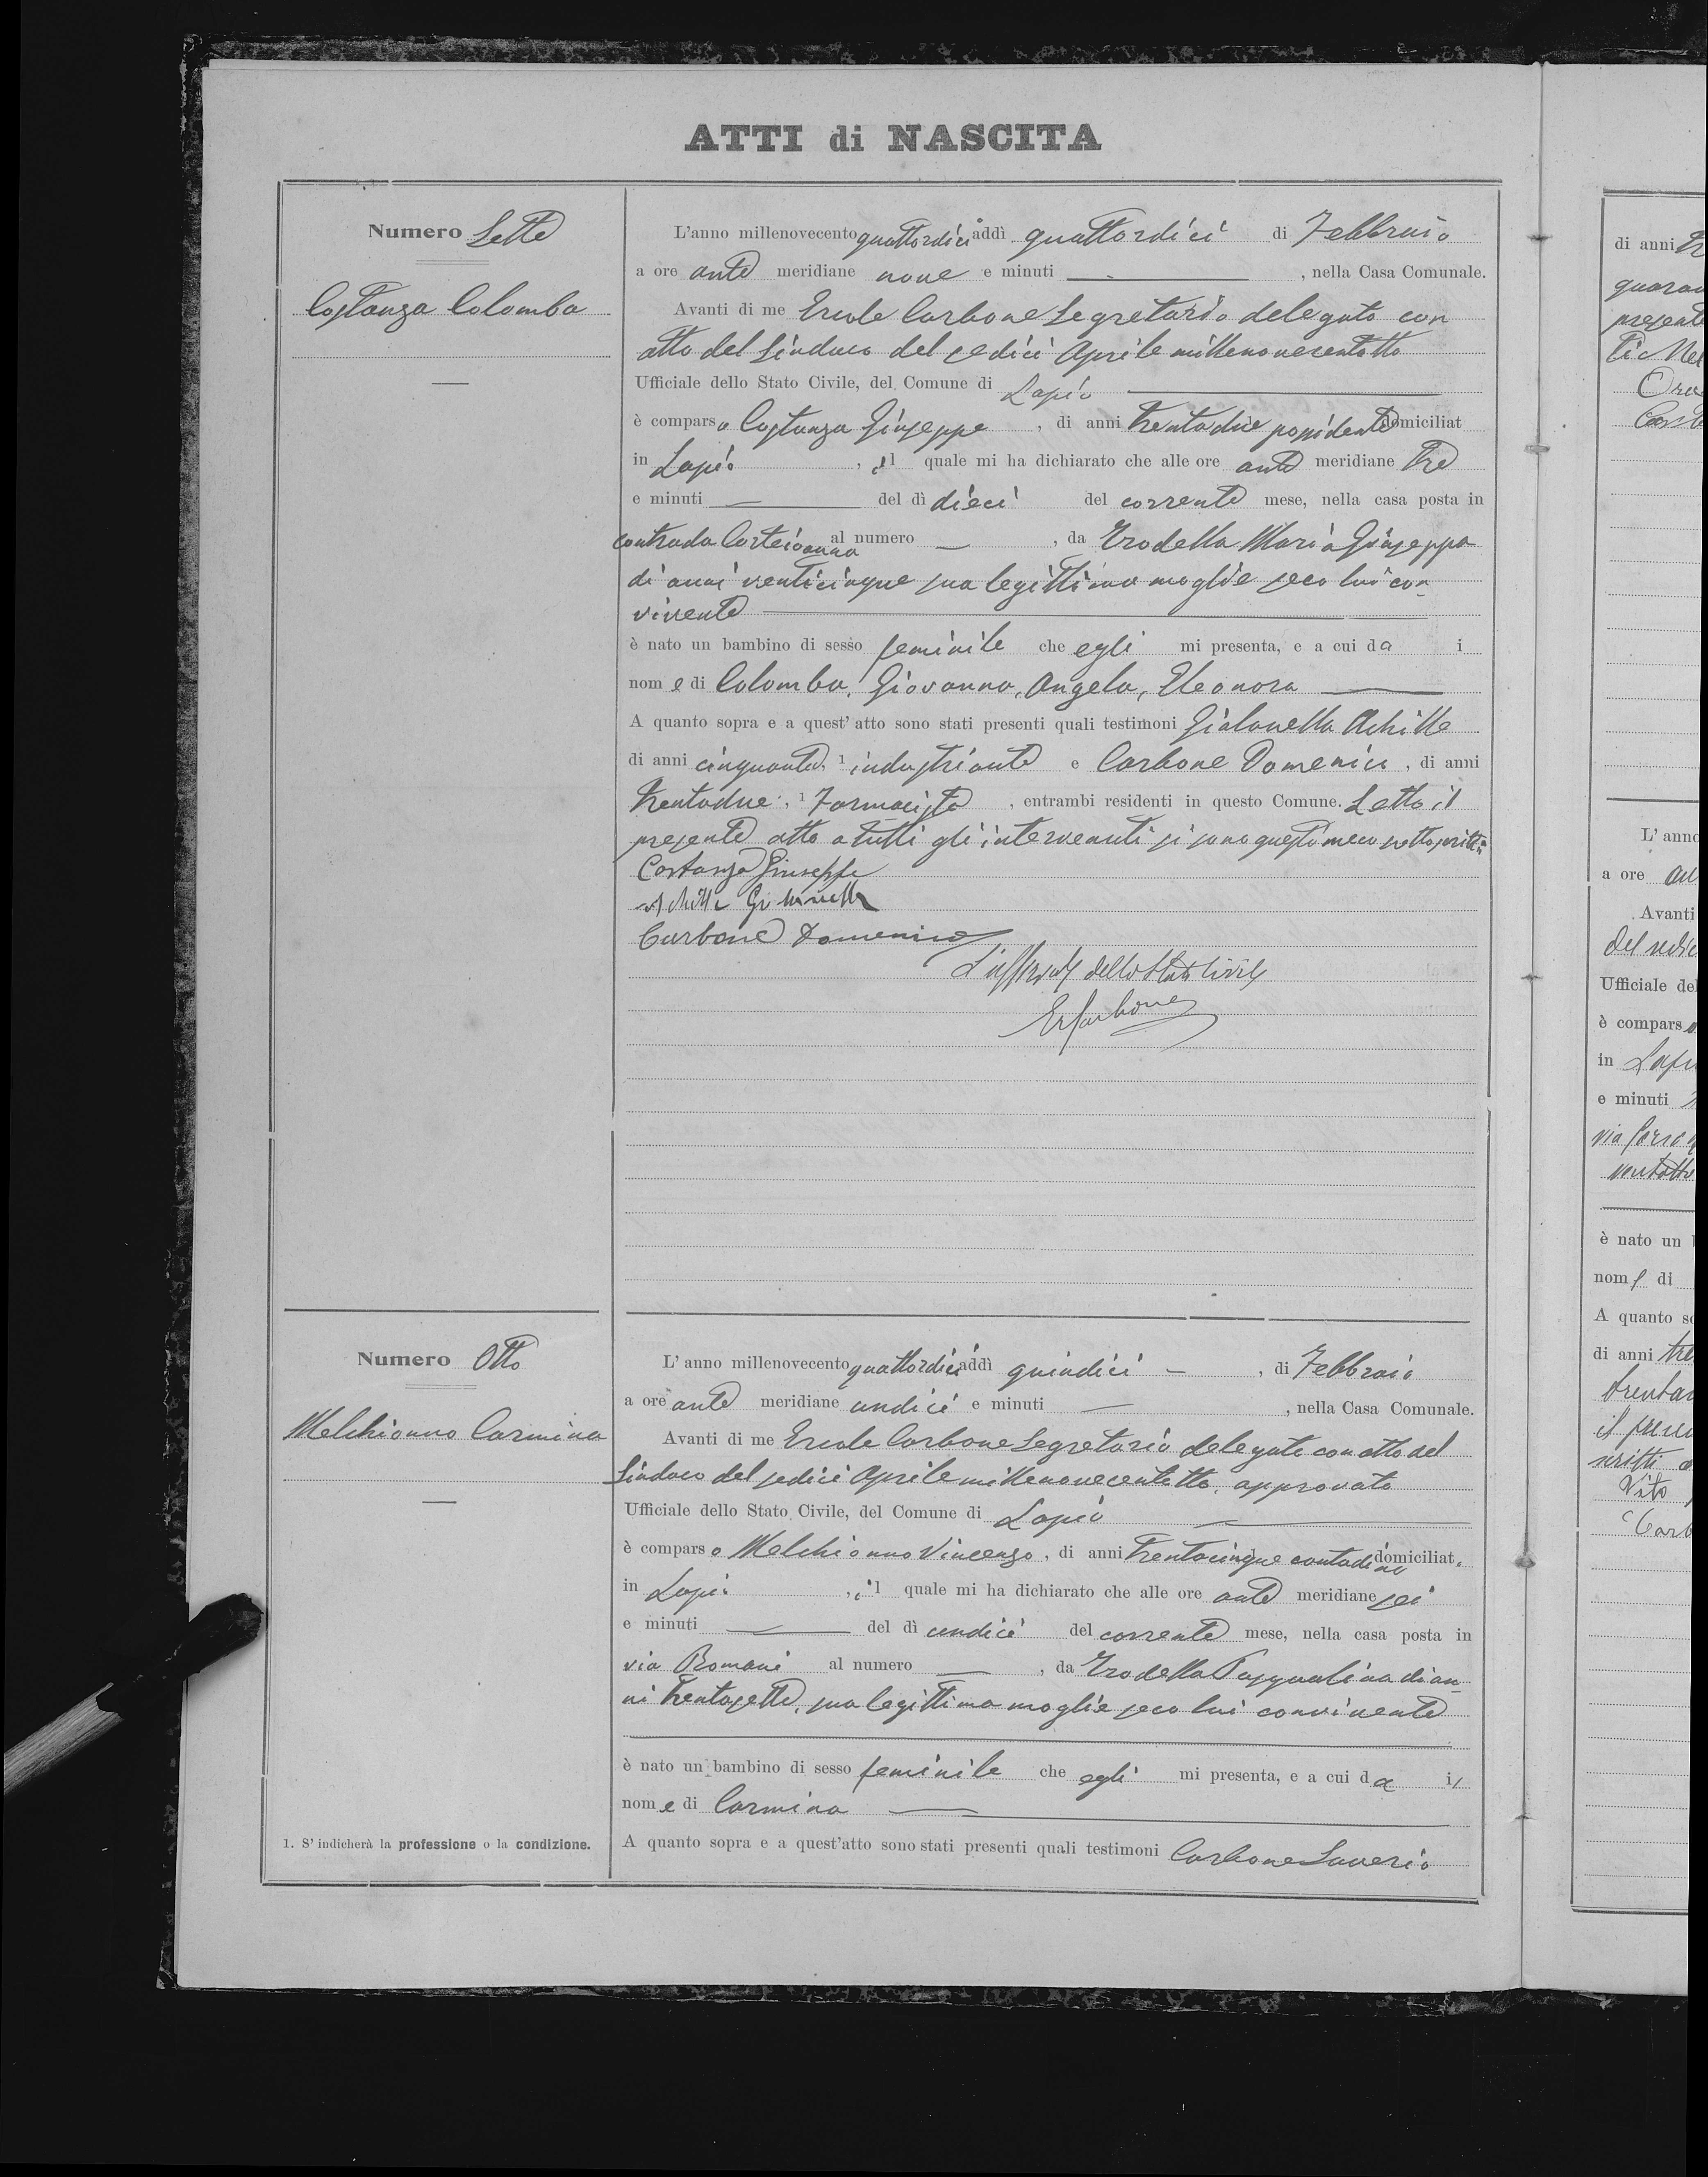 ATTI di NASCITA
Numero Sette
Costanza Colomba
L'anno millenovecento quattordici addì quattordici di Febbraio
a ore ante meridiane nove e minuti — , nella Casa Comunale.
Avanti di me Ercole Carbone Segretario delegato con
atto del Sindaco del sedici Aprile millenovecentotto
Ufficiale dello Stato Civile, del Comune di Lapio
è comparso Costanza Giuseppe , di anni trentadue possidente domiciliat
in Lapio , il quale mi ha dichiarato che alle ore ante meridiane tre
e minuti — del dì dieci del corrente mese, nella casa posta in
contrada Corteioanna al numero — , da Trodella Maria Giuseppa
di anni venticinque sua legittima moglie seco lui con-
vivente
è nato un bambino di sesso feminile che egli mi presenta, e a cui da i
nome di Colomba, Giovanna, Angela, Eleonora —
A quanto sopra e a quest'atto sono stati presenti quali testimoni Gialanella Achille
di anni cinquanta, 1 industriante e Carbone Domenico , di anni
trentadue, 1 Farmacista , entrambi residenti in questo Comune. Letto il
presente atto a tutti gli intervenuti si sono questi meco sottoscritti
Costanza Giuseppe
Achille Gialanella
Carbone Domenico
L'uffiziale dello Stato Civile
E. Carbone
Numero Otto
Melchionno Carmina
L'anno millenovecento quattordici addì quindici — , di Febbraio
a ore ante meridiane undici e minuti — , nella Casa Comunale.
Avanti di me Ercole Carbone Segretario delegato con atto del
Sindaco del sedici Aprile millenovecentotto, approvato
Ufficiale dello Stato Civile, del Comune di Lapio
è comparso Melchionno Vincenzo , di anni trentacinque contadino domiciliat.
in Lapio , il quale mi ha dichiarato che alle ore ante meridiane sei
e minuti — del dì undici del corrente mese, nella casa posta in
via Romani al numero — , da Trodella Pasqualina di an-
ni trentasette, sua legittima moglie seco lui convivente
è nato un bambino di sesso feminile che egli mi presenta, e a cui da il
nome di Carmina —
A quanto sopra e a quest'atto sono stati presenti quali testimoni Carbone Saverio
1. S'indicherà la professione o la condizione.
di anni
presente
L'anno
a ore
Avanti
Ufficiale del
è compars
in
e minuti
è nato un
nom di
A quanto so
di anni
Vito